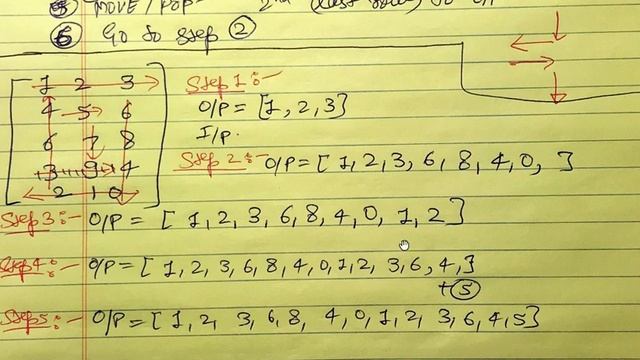 5 MOVE / POP 2nd
6 Go to step 2
1 2 3
4 5 6
6 7 8
3 9 4
2 1 0
Step 1:-
O/P = [1, 2, 3]
I/p.
Step 2:- O/P = [ 1, 2, 3, 6, 8, 4, 0, ]
Step 3:- O/P = [ 1, 2, 3, 6, 8, 4, 0, 1, 2 ]
Step 4:- O/P = [ 1, 2, 3, 6, 8, 4, 0, 1, 2, 3, 6, 4, ]
+ 5
Step 5:- O/P = [ 1, 2, 3, 6, 8, 4, 0, 1, 2, 3, 6, 4, 5 ]